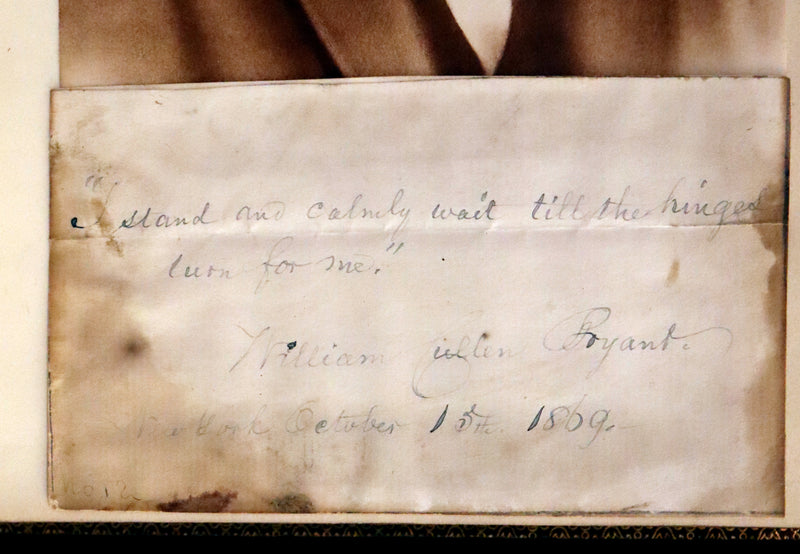 "I stand and calmly wait till the hinges
turn for me."
William Cullen Bryant.
New York October 15th. 1869.